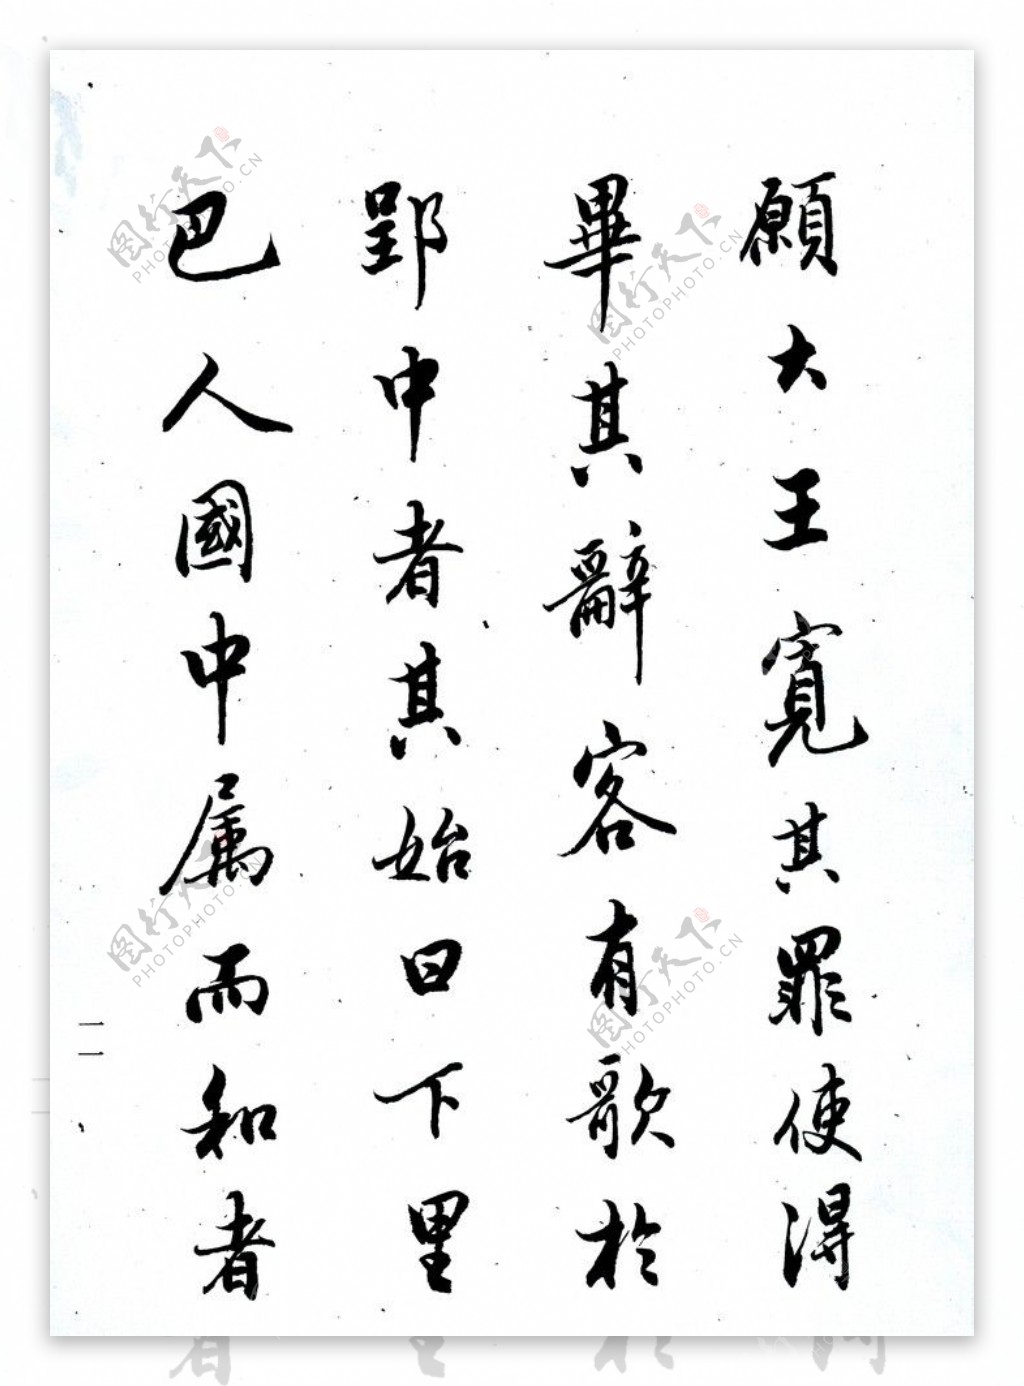 願大王寬其罪使得
畢其辭客有歌於
郢中者其始曰下里
巴人國中属而和者
一一
图行天下
PHOTOPHOTO.CN
图行天下
PHOTOPHOTO.CN
图行天下
PHOTOPHOTO.CN
图行天下
PHOTOPHOTO.CN